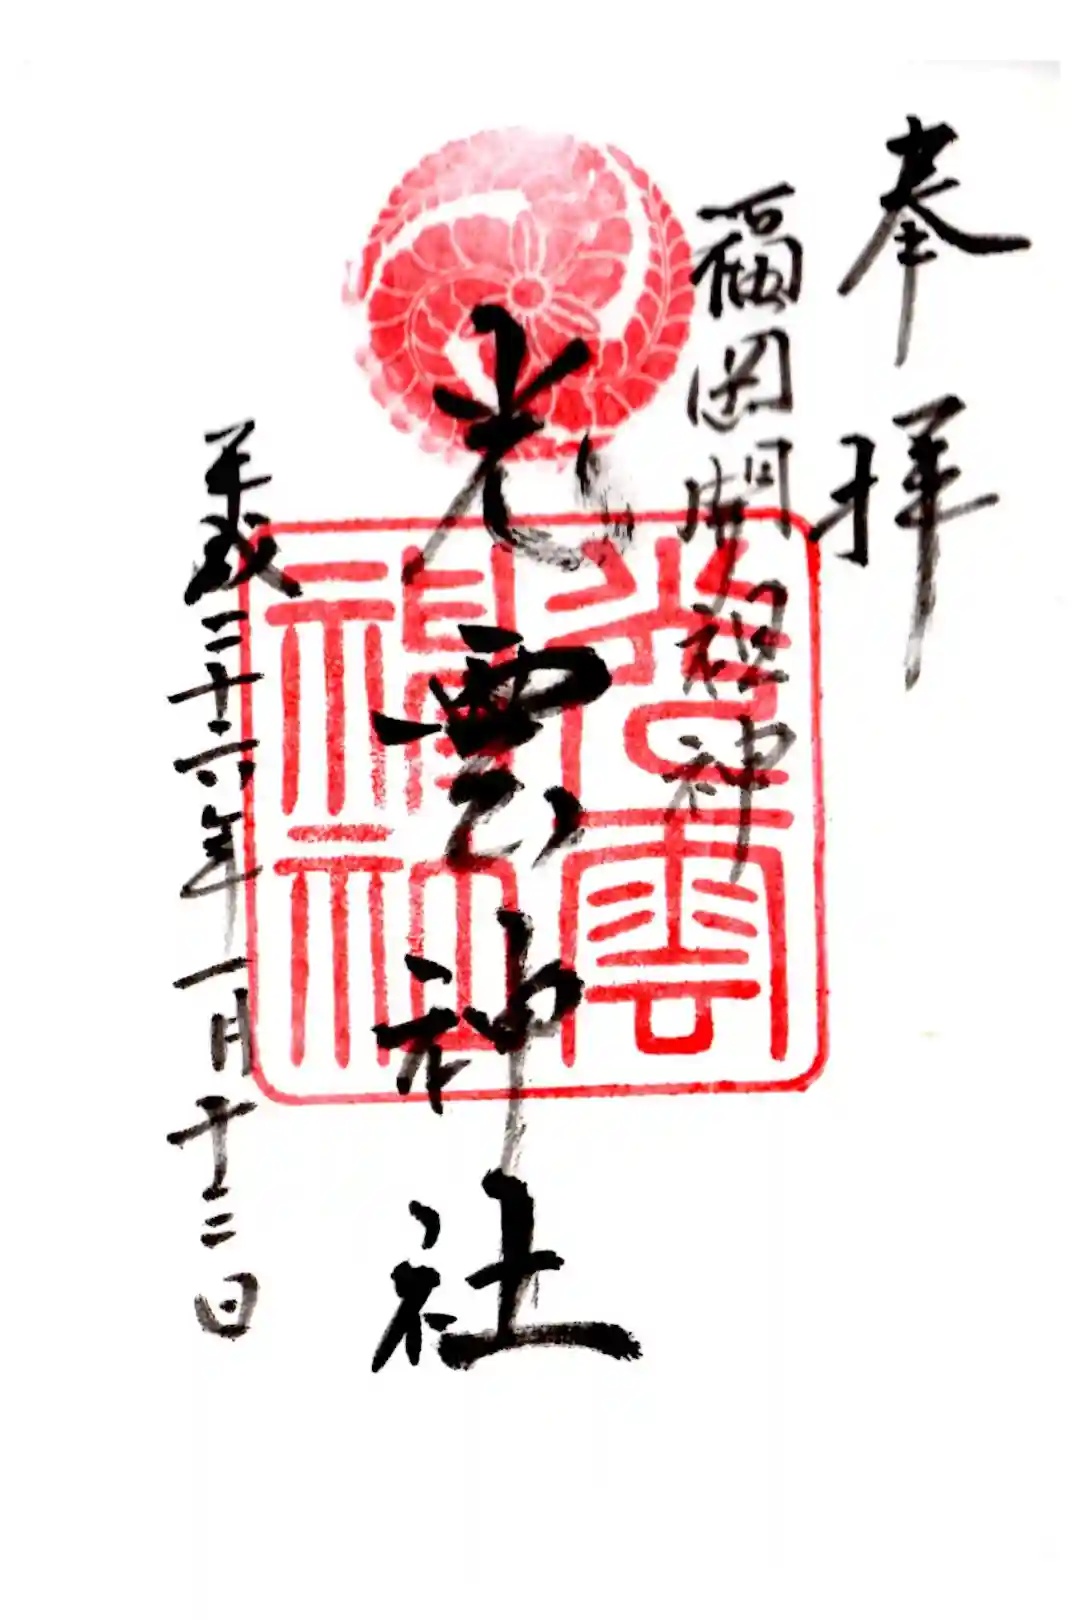 奉拝
福岡開祖神
光雲神社
光雲神社
平成二十六年一月十二日